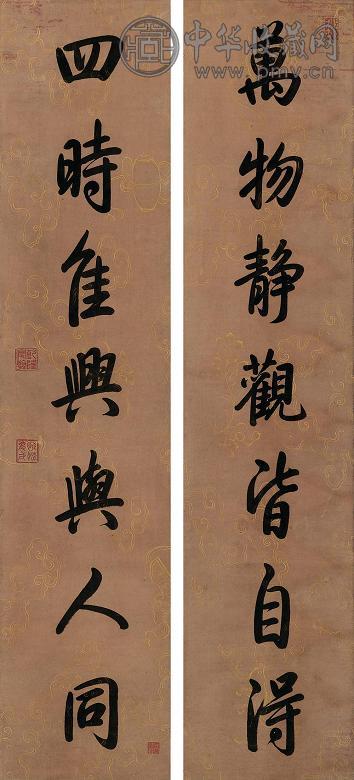 中华收藏网
www.pmv.cn
萬物静觀皆自得
四時佳興與人同